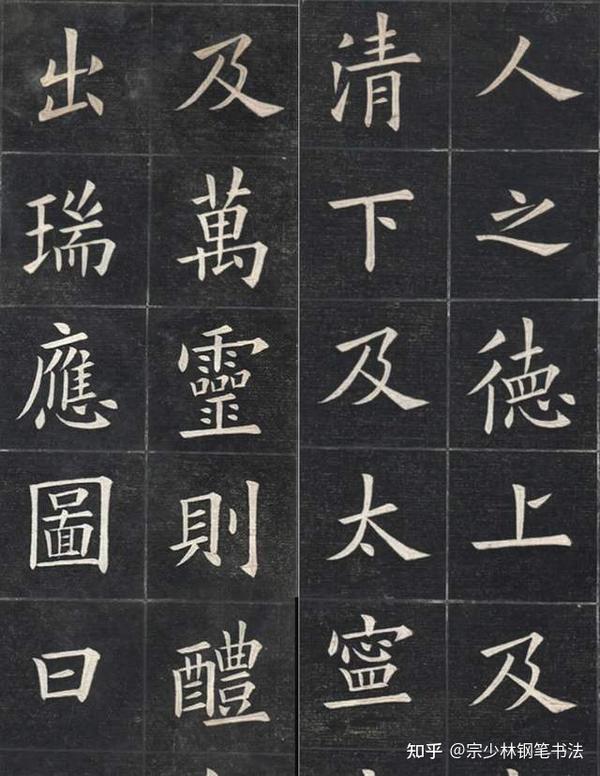 人之徳上及
清下及太寍
及萬靈則醴
出瑞應圖曰
知乎 @宗少林钢笔书法